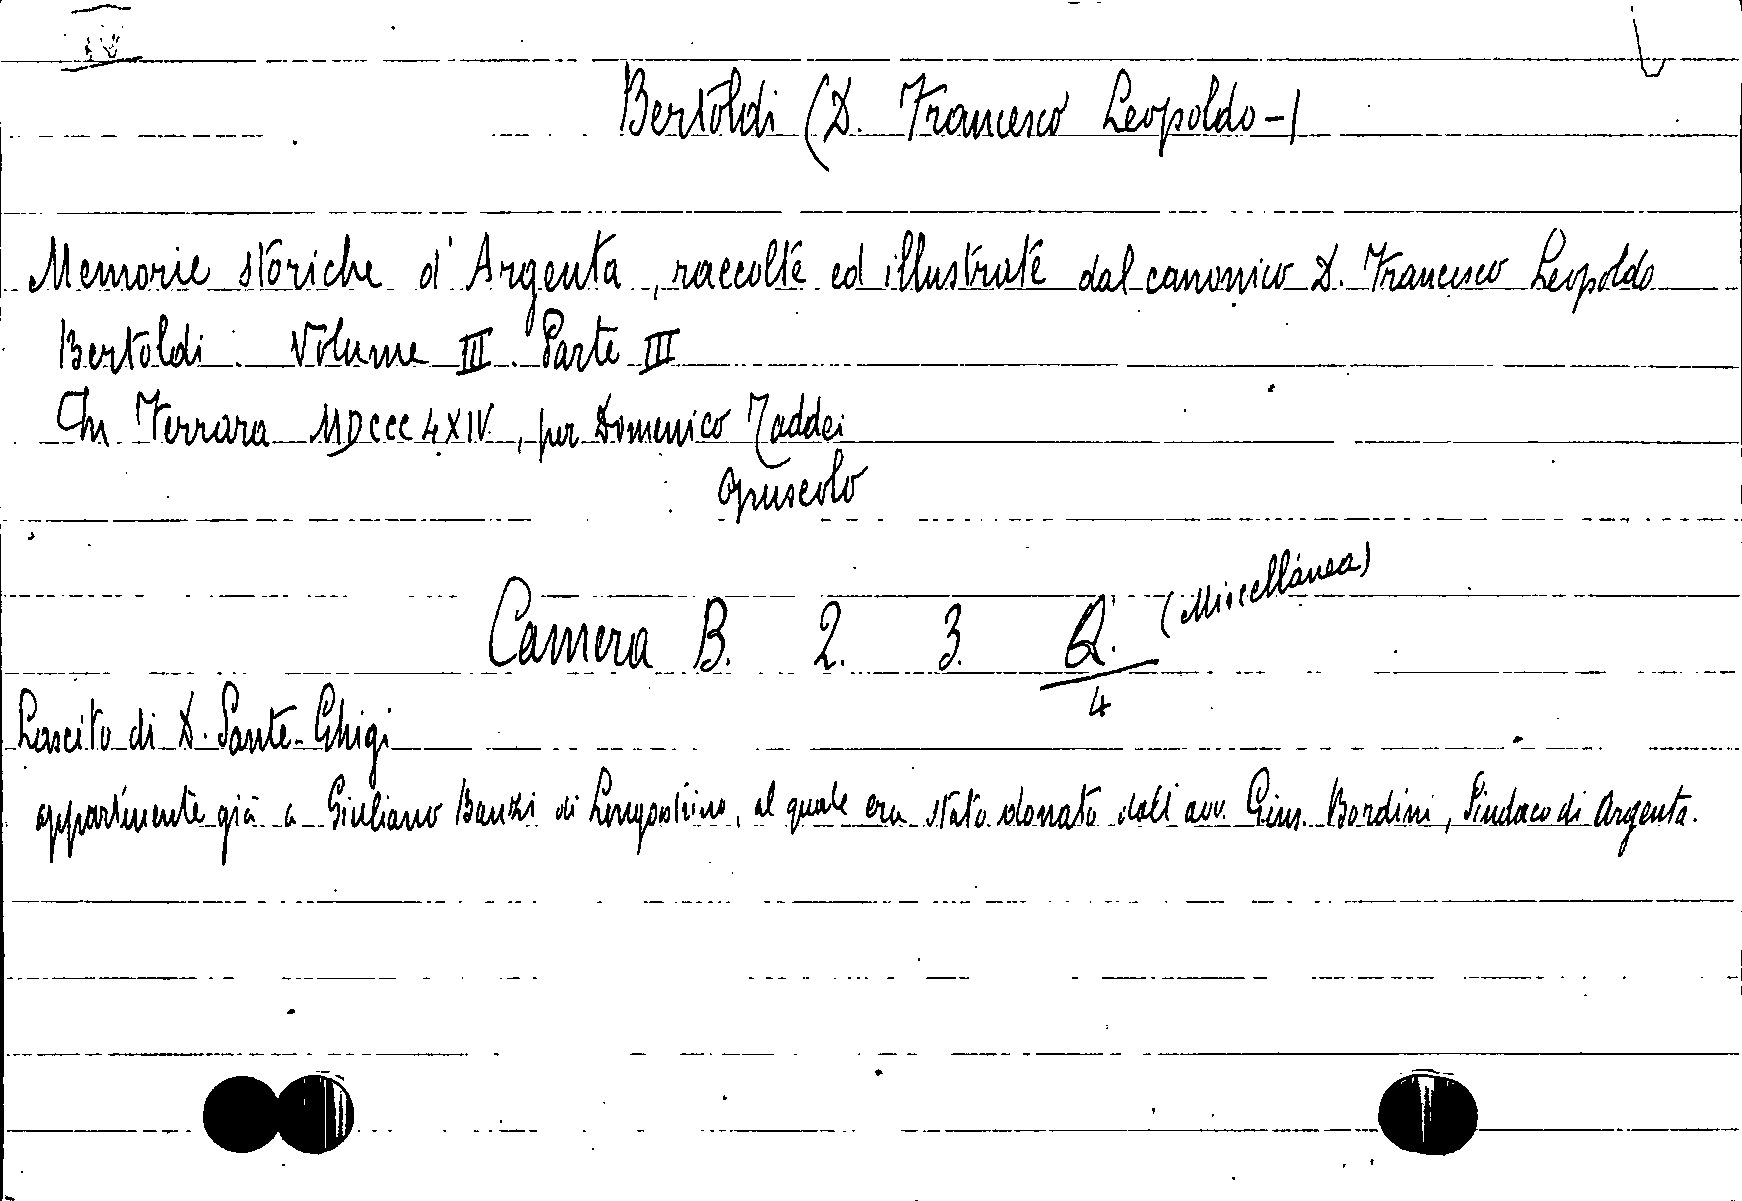 IV
Bertoldi (D. Francesco Leopoldo-)
Memorie storiche d'Argenta, raccolte ed illustrate dal canonico D. Francesco Leopoldo
Bertoldi. Volume III. Parte III
In Ferrara MDCCCLXIV, per Domenico Taddei
opuscolo
(Miscellánea)
Camera B. 2. 3. Q.
4
Lascito di D. Sante Ghigi
appartenente già a Giuliano Banzi di Longastrino, al quale era stato donato dall'avv. Gius. Bordini, Sindaco di Argenta.